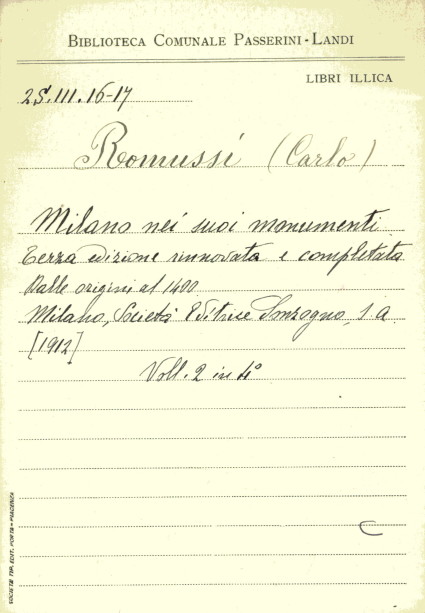 BIBLIOTECA COMUNALE PASSERINI-LANDI
LIBRI ILLICA
2S.III.16-17
Romussi (Carlo)
Milano nei suoi monumenti
Terza edizione rinnovata e completata
Dalle origini al 1400
Milano, Società Editrice Sonzogno, s.a.
[1912]
Voll. 2 in 4°
SOCIETÀ TIP. EDIT. PORTA - PIACENZA